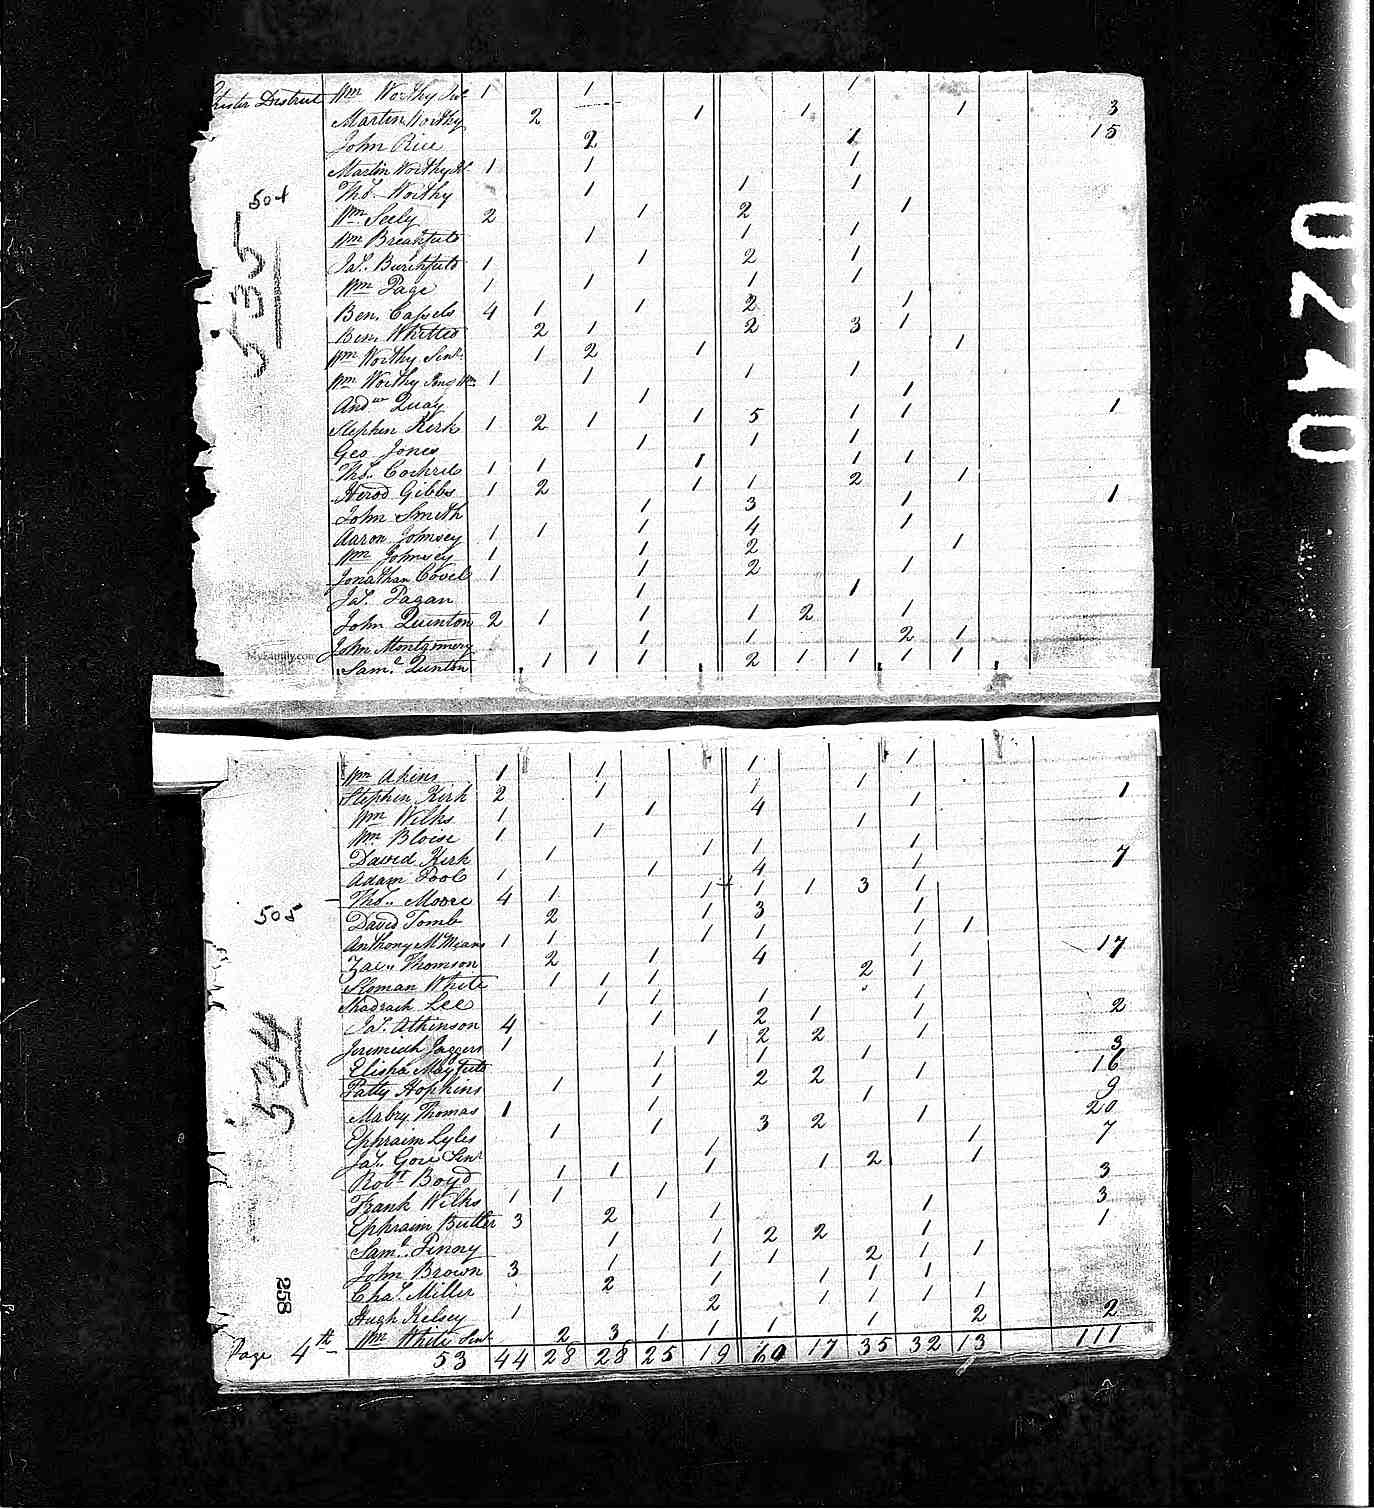 Chester District Wm Worthy Jur 1 1 1
Martin Worthy 2 1 1 1 3
John Rice 2 1 15
Martin Worthy 1 1 1
Thos. Worthy 1 1 1
504
Wm Seely 2 1 2 1
Wm 1 1 1
535
Jas. 1 1 2 1
Wm Page 1 1 1 1
Ben. Capels 4 1 1 2 1
Ben. Whitted 2 1 2 3 1
Wm Worthy Senr. 1 2 1 1
Wm Worthy 1 1 1 1
Andw Quay 1 1
Stephen Kirk 1 2 1 1 5 1 1 1
Geo Jones 1 1 1
Thos. Cochrels 1 1 1 1 1
Herod Gibbs 1 2 1 1 2 1
John Smith 1 3 1 1
Aaron Johnsey 1 1 1 4 1
Wm Johnsey 1 1 2 1
Jonathan Covel 1 1 2 1
Jas. Pagan 1 1
John Quinton 2 1 1 1 2 1
John Montgomery 1 1 2 1
MyFamily.com
Saml. Quinton 1 1 1 2 1 1 1 1
Wm Akins 1 1 1 1
Stephen Kirk 2 1 1 1 1
Wm Wilks 1 1 4 1
Wm. Bloise 1 1 1
David Kirk 1 1 1 1
Adam Pool 1 1 4 1 7
Thos. Moore 4 1 1 1 1 3 1
505
David Tomb 2 1 3 1
Anthony 1 1 1 1 1 1
Zac. Thomson 2 1 4 1 17
Sloman White 1 1 1 2 1
Shadrach Lee 1 1 1 1
Jas. Atkinson 4 1 2 1 1 2
Jeremiah Jaggers 1 1 2 2 1
Elisha 1 1 1 3
534
Patty Hopkins 1 1 2 2 1 16
Mabry Thomas 1 1 1 9
Ephraim Lyles 1 1 3 2 1 20
Jas. Gore Senr 1 1 7
Robt Boyd 1 1 1 1 2 1
Frank Wilks 1 1 1 3
Ephraim Butler 3 2 1 1 3
Saml. Pinny 1 1 2 2 1 1
John Brown 3 1 1 1 2 1 1
Chas. Miller 2 1 1 1 1
258
Hugh Kelsey 1 2 1 1 1 1
Wm White Senr 2 3 1 1 1 1 2 2
Page 4th 53 44 28 28 25 19 60 17 35 32 13 111
0240